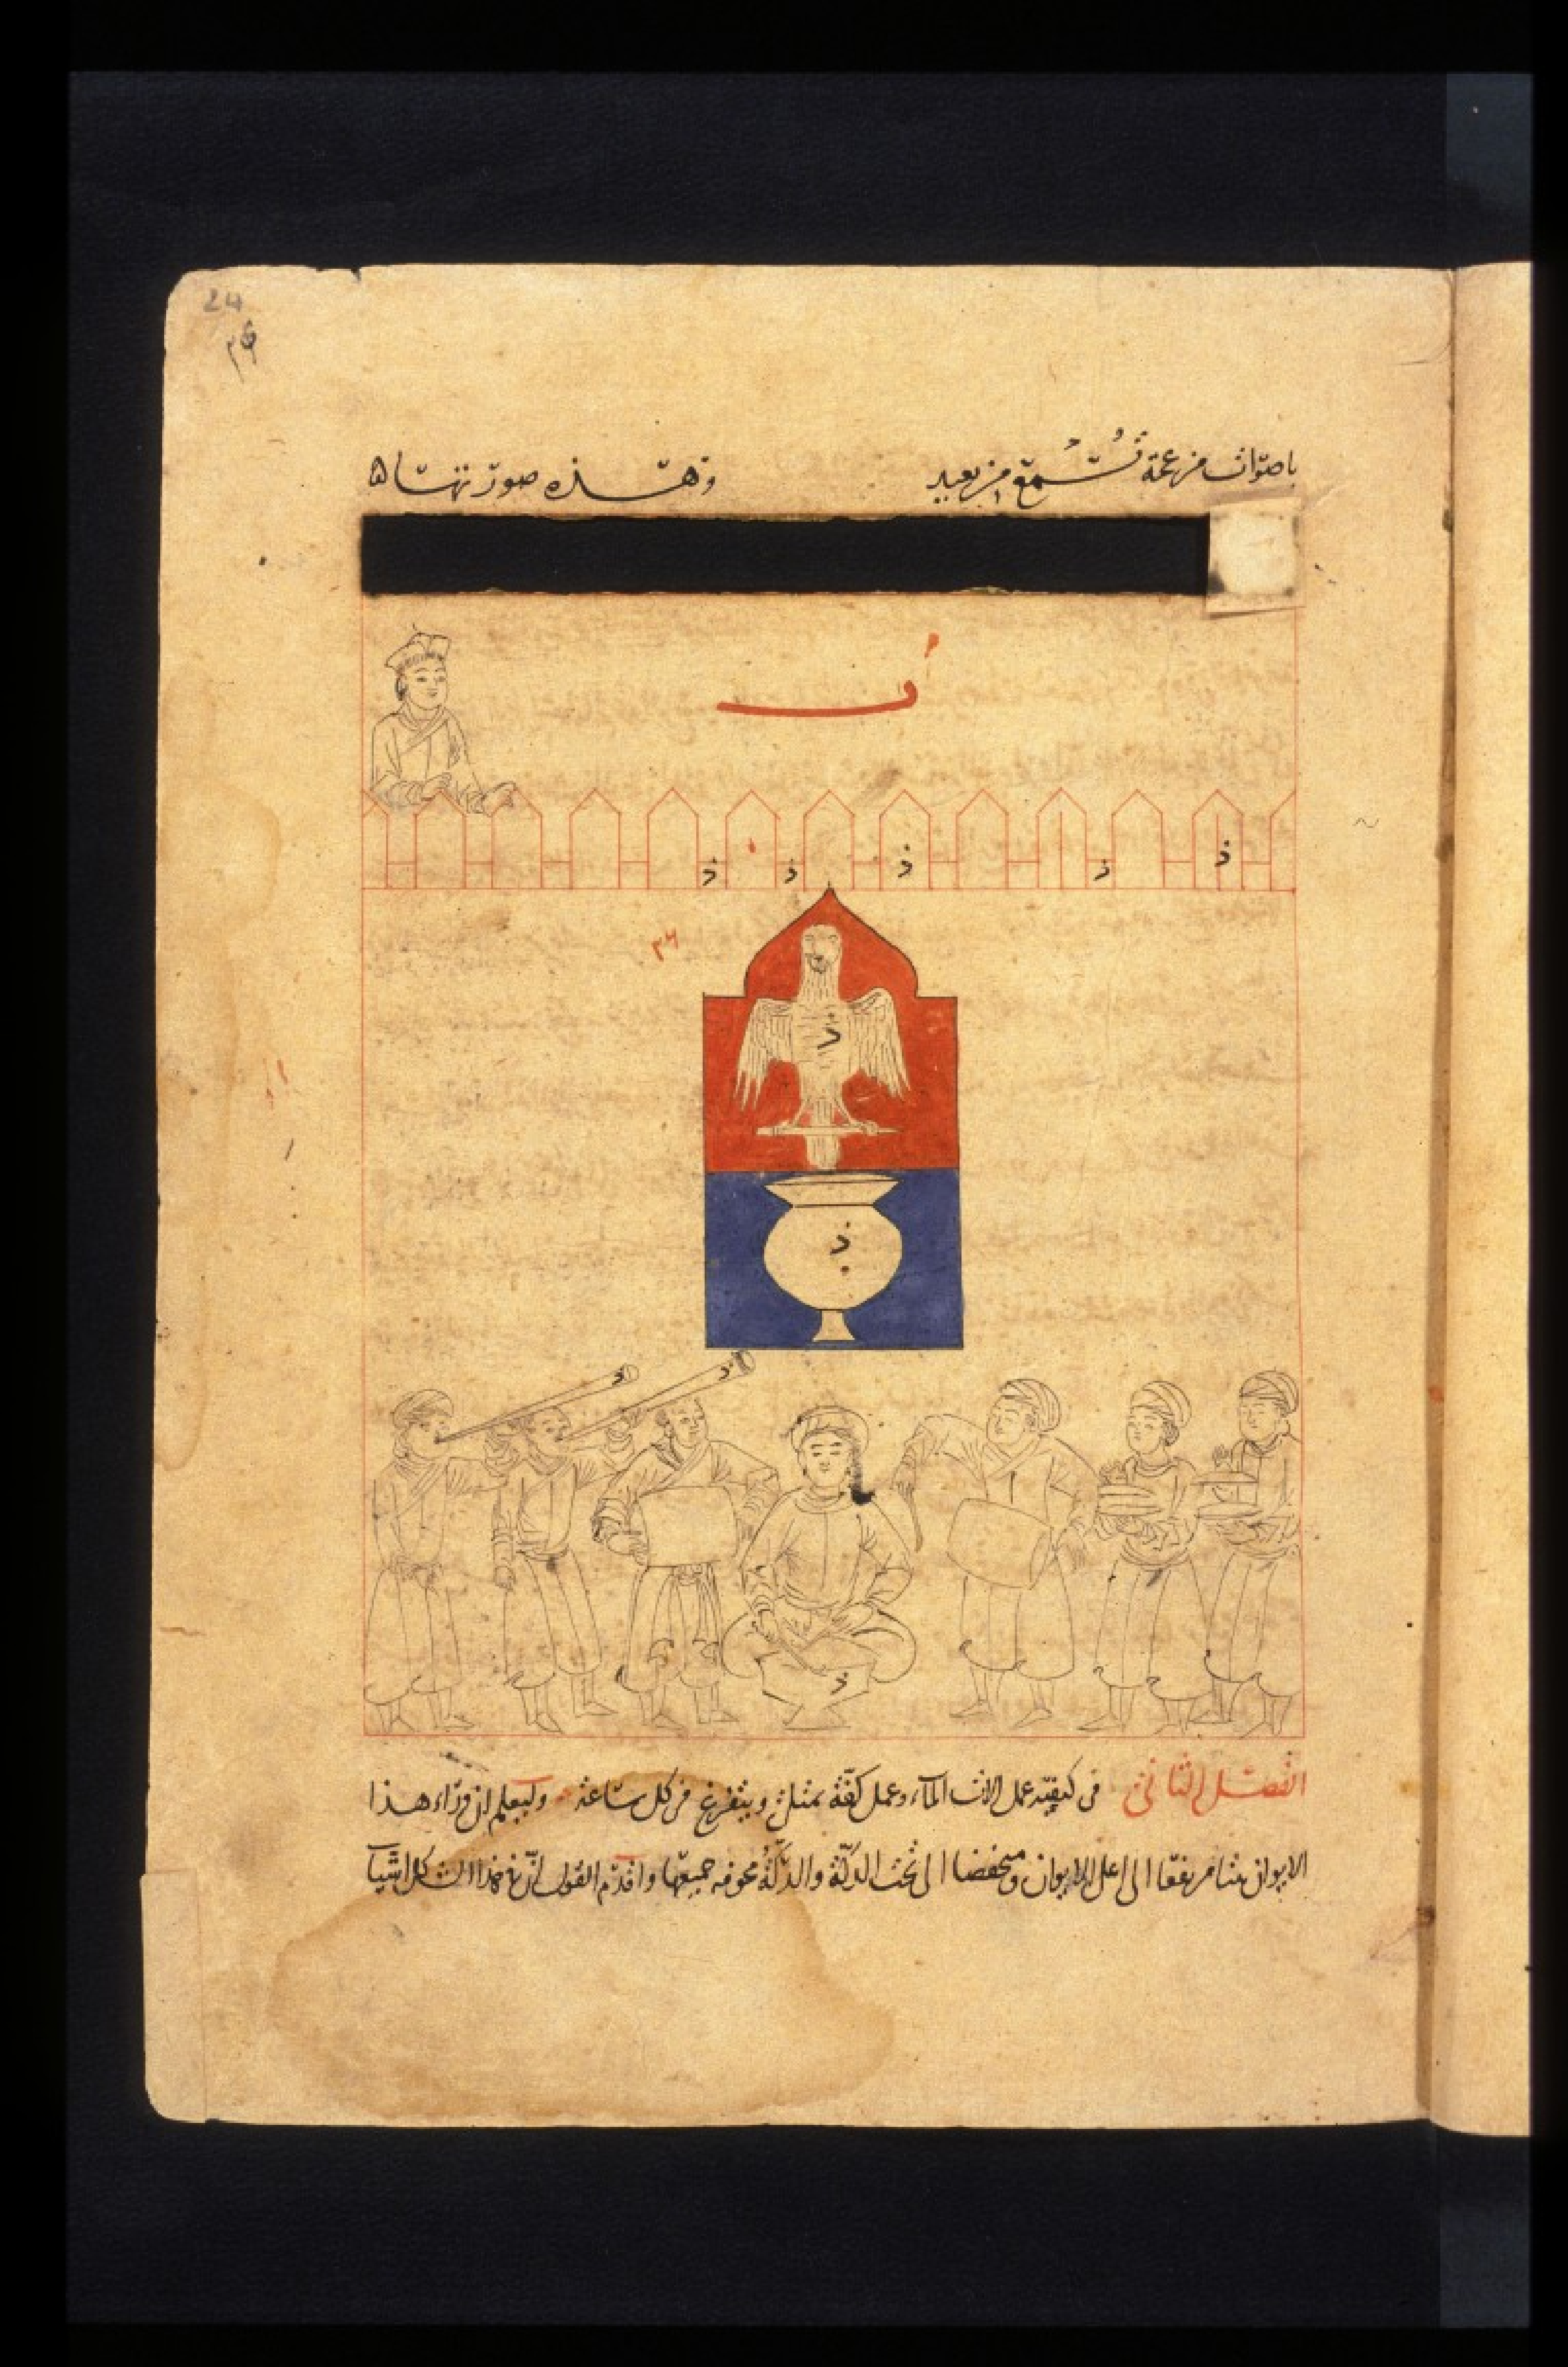 24
٢٤
باصوات مزعجة تسمع من بعيد وهذه صورتها
ف
د د د د د
٢٤
د
د
د د
د
الفصل الثاني في كيفية عمل الات الماء وعمل كفة تمتلئ ويتفرغ في كل ساعة وليعلم ان وراء هذا
الايوان بيتا مرتفعا الى اعلى الايوان ومنخفضا الى تحت الدكة والدكة مجوفه جميعها واقدم القول ان في هذا الشكل اشيا